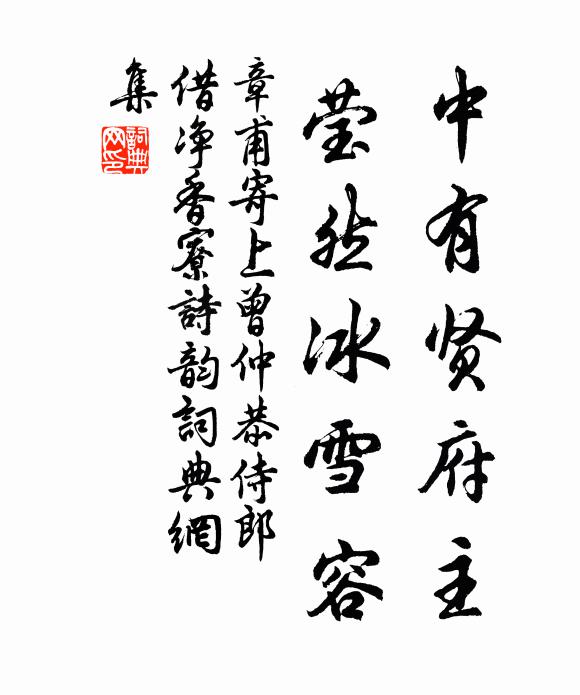 中有贤府主
莹然冰雪容
章甫寄上曾仲恭侍郎
借净香寮詩韵詞典網
集
詞典网印